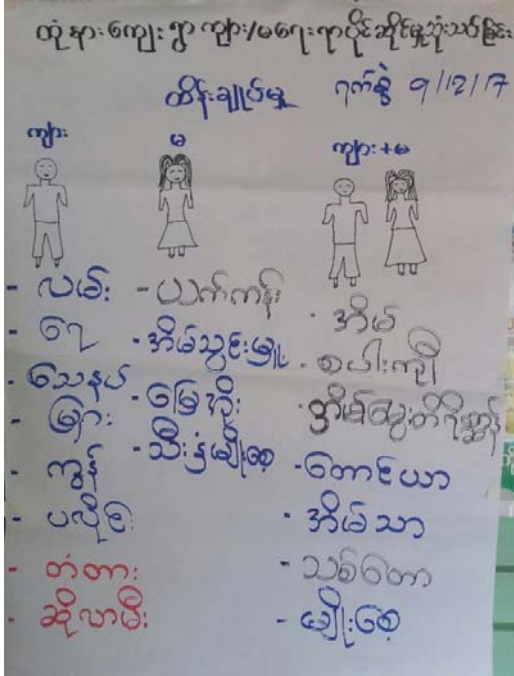 ထုံနားကျေးရွာ ကျား/မရေးရာပိုင်ဆိုင်မှုသုံးသပ်ခြင်း
ထိန်းချုပ်မှု ရက်စွဲ ၅/12/17
ကျား
မ
ကျား+မ
- လမ်း
- ရေ
- သေနပ်
- မြား
- ကွန်
- ပလိုင်း
- တံတား
- ဆိုလာမီး
- ယက်ကန်း
- အိမ်သွင်းမှု
- မြေအိုး
- သီးနှံမျိုးစေ့
- အိမ်
- စပါးကျီ
- အိမ်မွေးတိရိစ္ဆာန်
- တောင်ယာ
- အိမ်သာ
- သစ်တော
- မျိုးစေ့